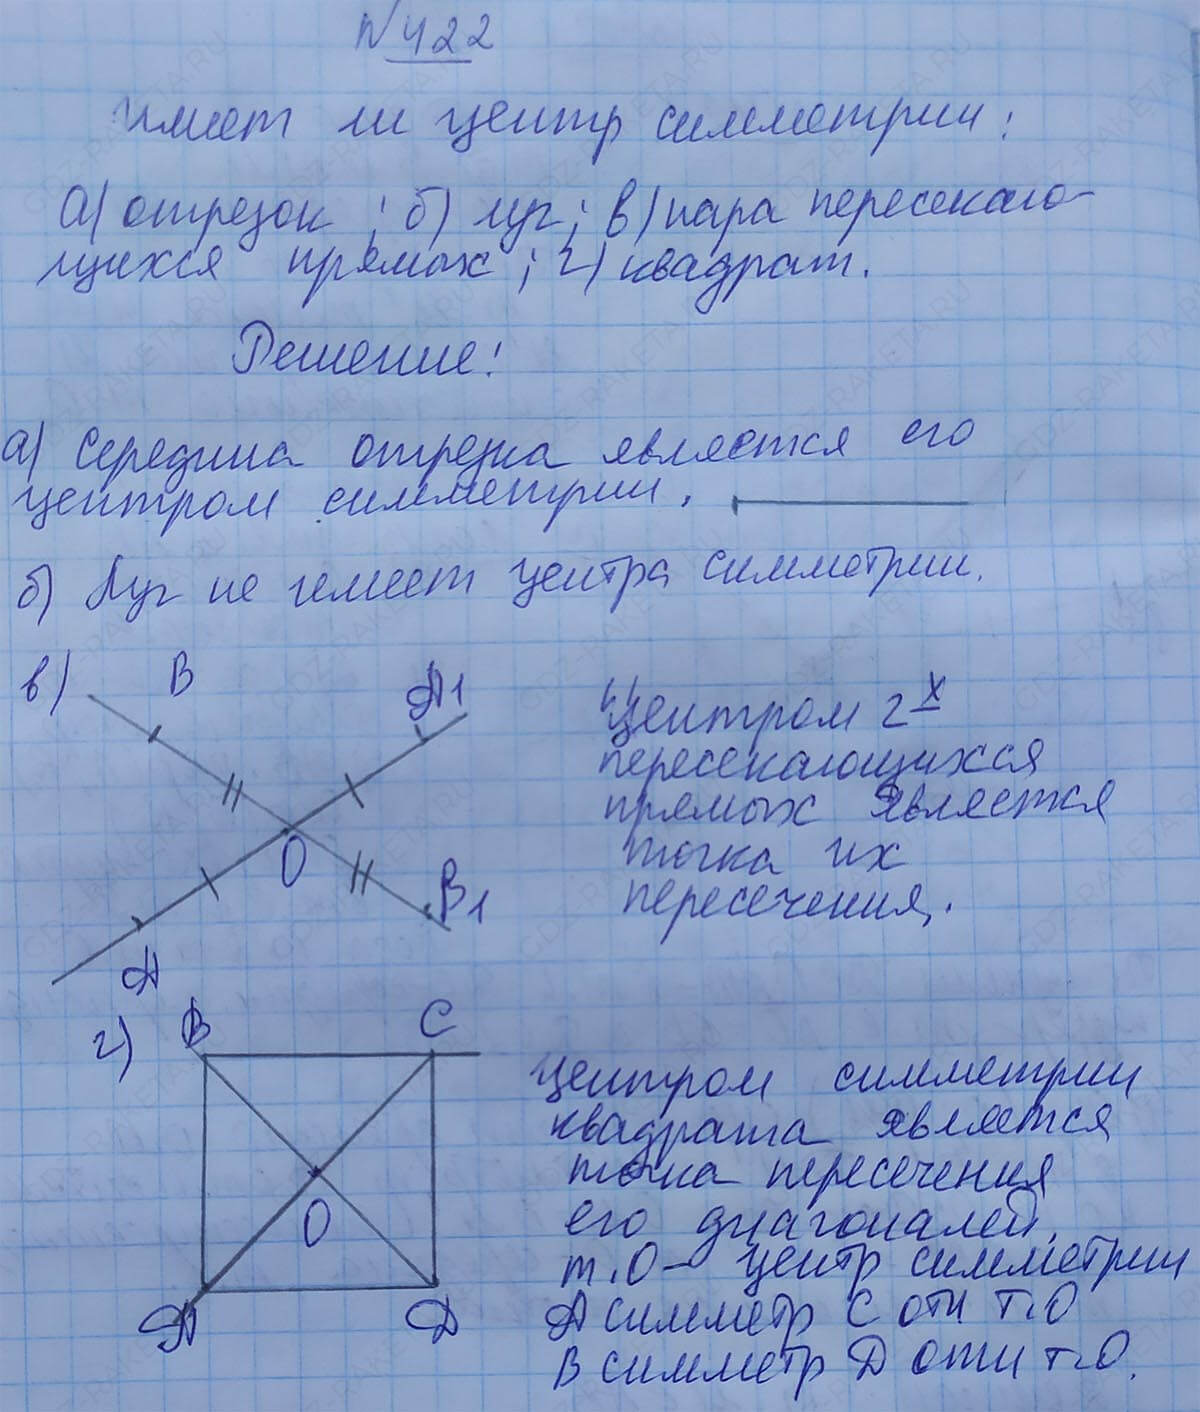 N 422
Имеет ли центр симметрии:
а) отрезок; б) луч; в) пара пересекаю-
щихся прямых; г) квадрат.
Решение:
а) Середина отрезка является его
центром симметрии.
б) Луч не имеет центра симметрии.
в)
B
A1
O
B1
A
Центром 2х
пересекающихся
прямых является
точка их
пересечения.
г)
B
C
O
A
D
Центром симметрии
квадрата является
точка пересечения
его диагоналей.
т.О - центр симметрии
A симметр C отн т.О
B симметр D отн т.О.